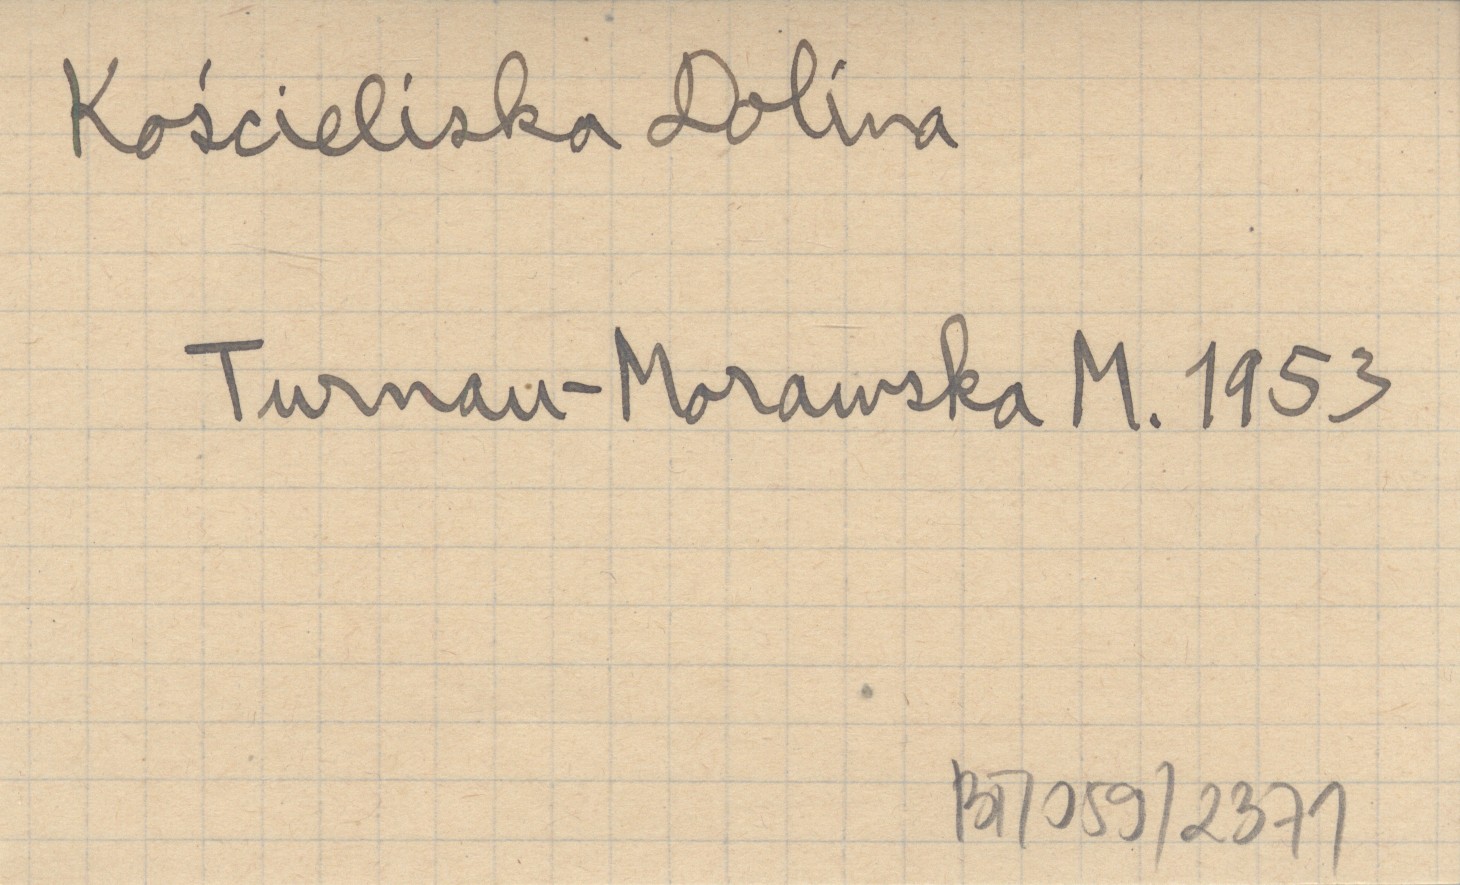 Kościeliska Dolina
Turnau-Morawska M. 1953
BT/059/2371